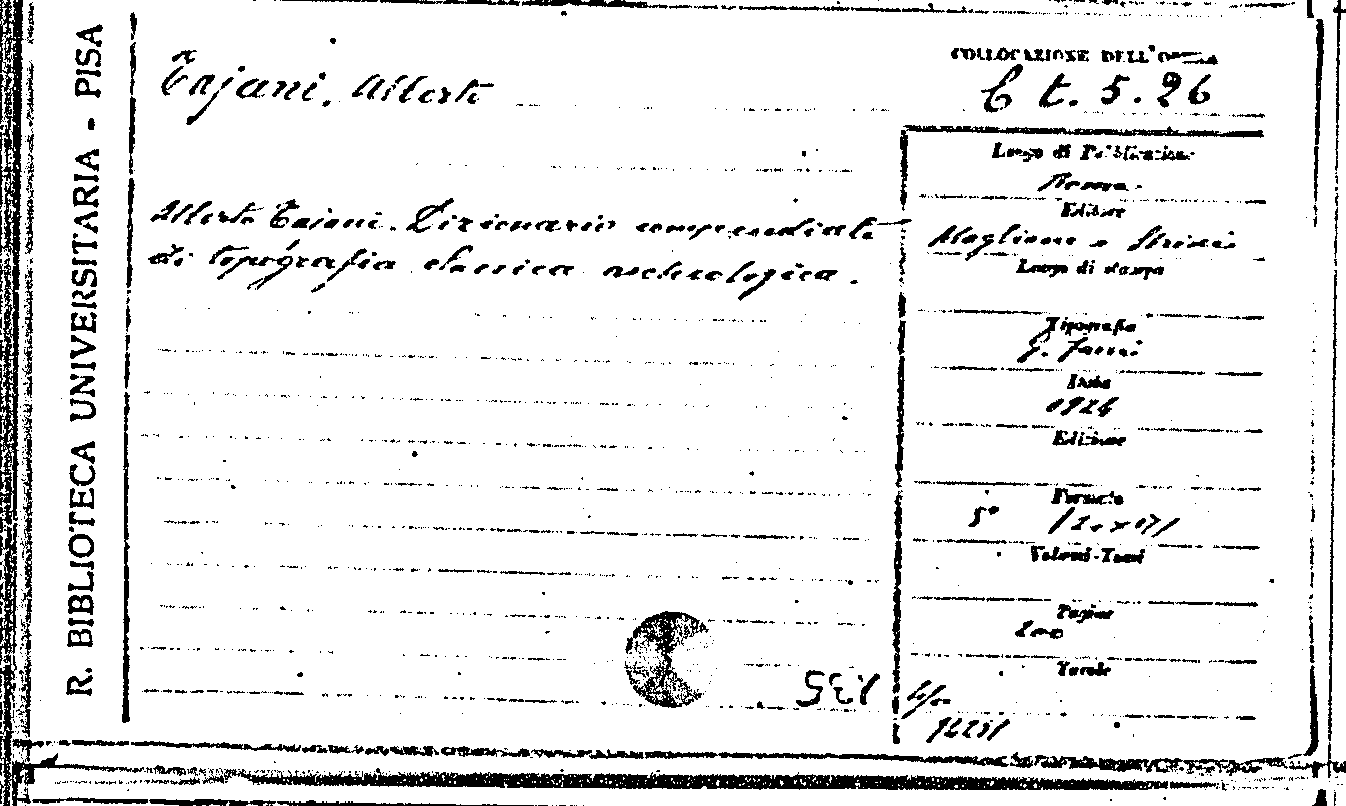 R. BIBLIOTECA UNIVERSITARIA - PISA
Tajani, Alberto
COLLOCAZIONE DELL'OPERA
C t. 5. 26
Alberto Tajani. Dizionario compendiato
di topografia classica archeologica.
Luogo di Pubblicazione
Roma
Editore
Maglione e Strini
Luogo di stampa
Tipografia
G.
Data
1926
Edizione
Formato
8°
Volumi-Tomi
Pagine
200
Tavole